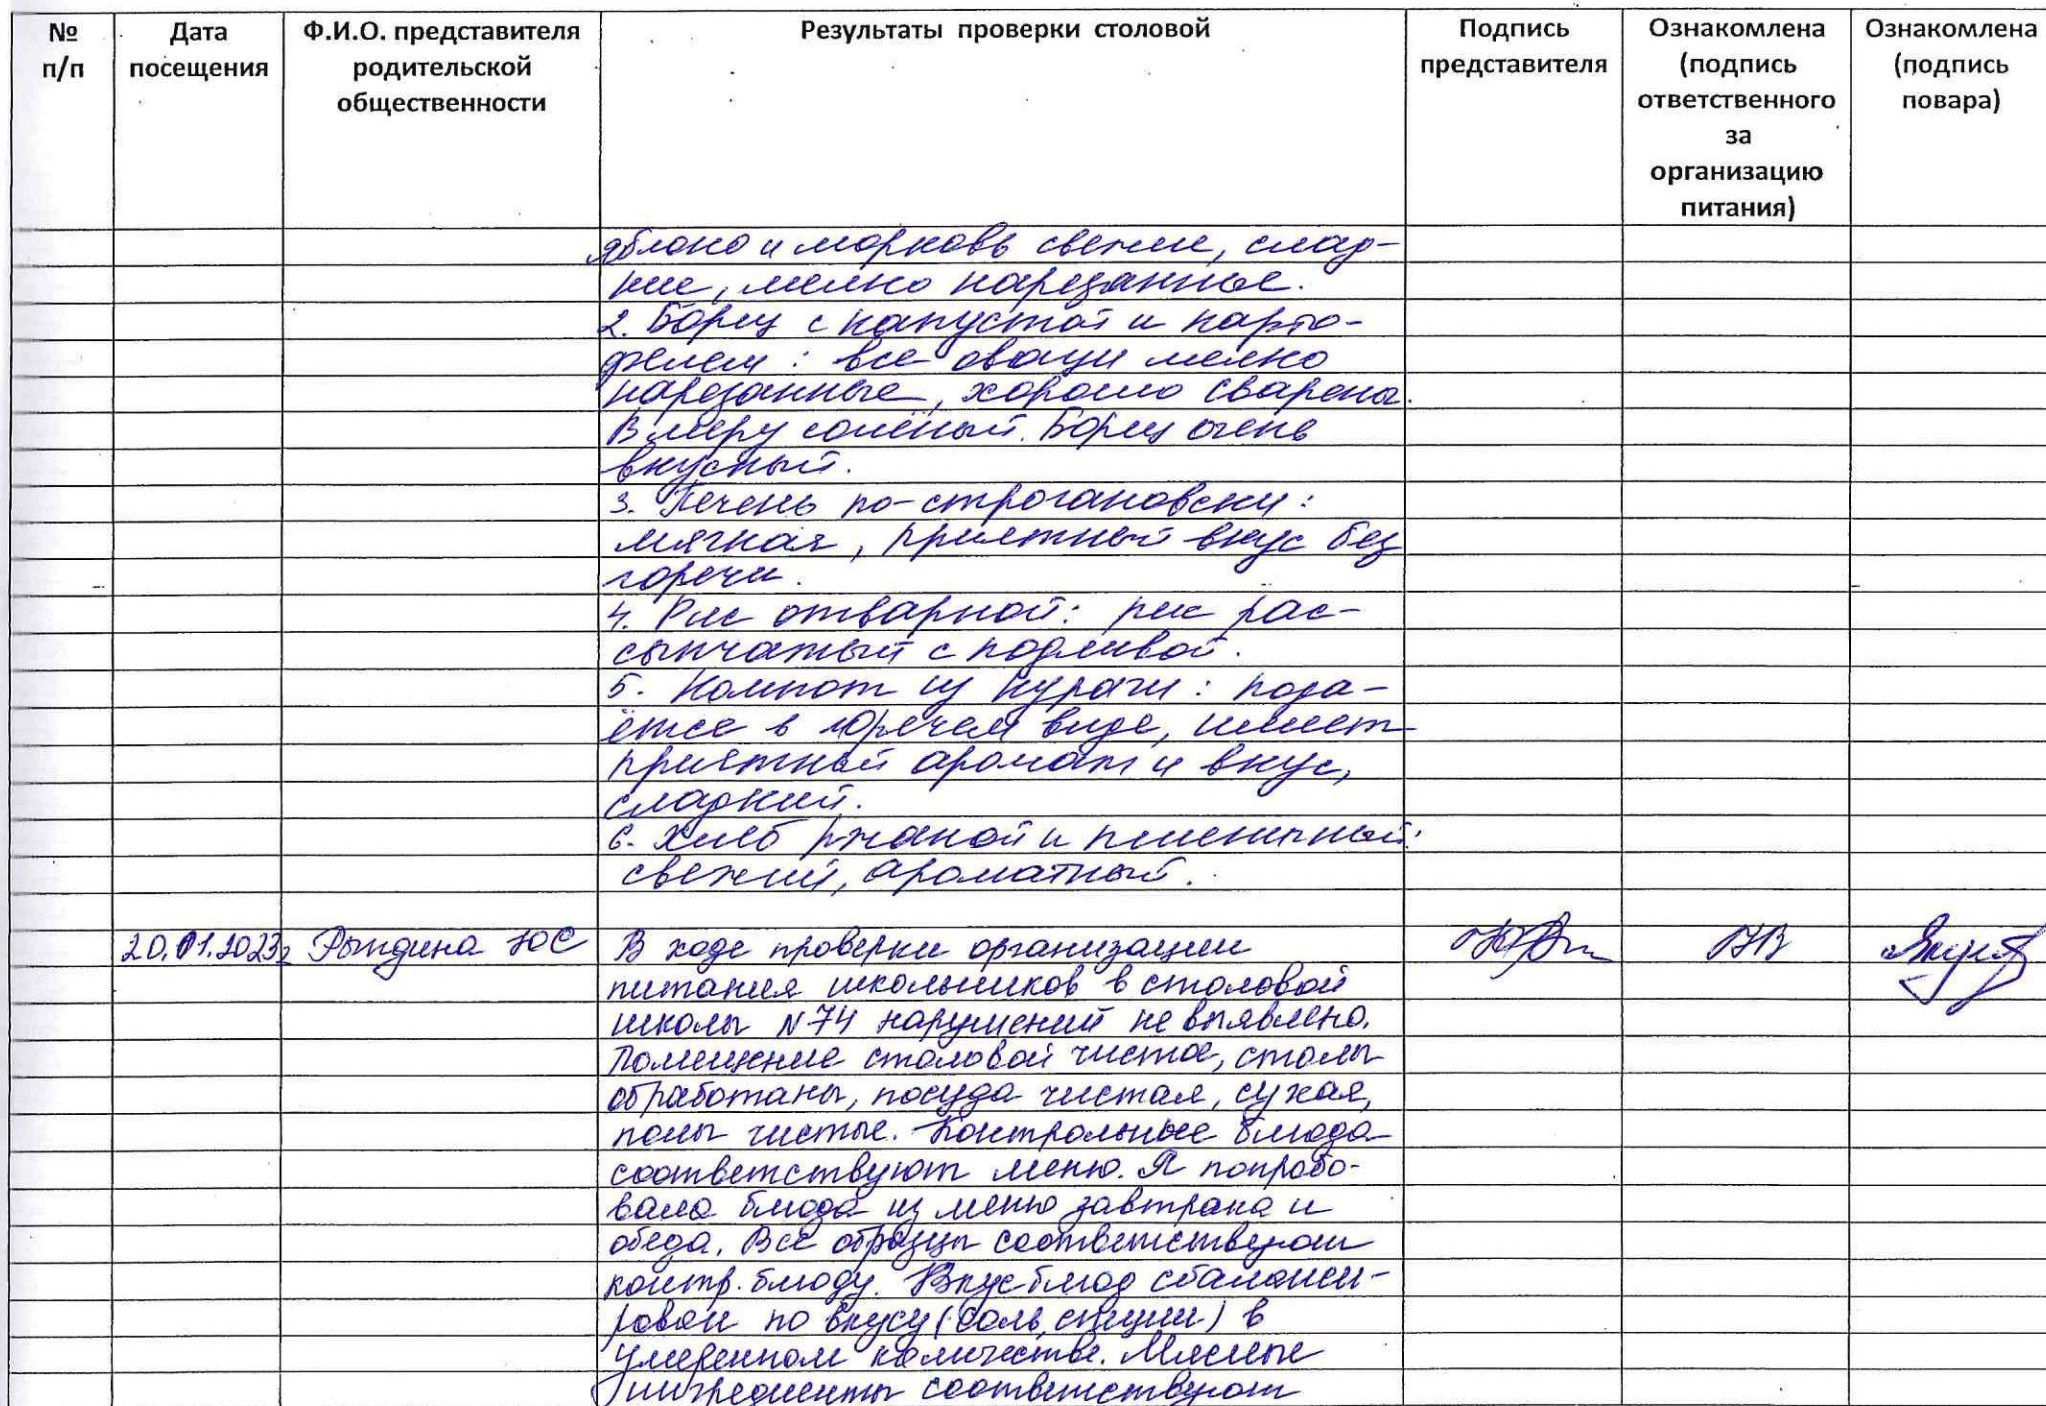 № п/п
Дата посещения
Ф.И.О. представителя родительской общественности
Результаты проверки столовой
Подпись представителя
Ознакомлена (подпись ответственного за организацию питания)
Ознакомлена (подпись повара)
яблоко и морковь свежие, слад-
кие, мелко нарезанные.
2. Борщ с капустой и карто-
фелем: все овощи мелко
нарезанные, хорошо сварены.
В меру солёный. Борщ очень
вкусный.
3. Печень по-строгановски:
мягкая, приятный вкус без
горечи.
4. Рис отварной: рис рас-
сыпчатый с подливой.
5. Компот из кураги: пода-
ётся в горячем виде, имеет
приятный аромат и вкус,
сладкий.
6. Хлеб ржаной и пшеничный:
свежий, ароматный.
20.01.2023г Рындина ЮС В ходе проверки организации
питания школьников в столовой
школы N74 нарушений не выявлено.
Помещение столовой чистое, столы
обработаны, посуда чистая, сухая,
полы чистые. Контрольные блюда
соответствуют меню. Я попробо-
вала блюда из меню завтрака и
обеда. Все образцы соответствуют
контр. блюду. Вкус блюд сбаланси-
рован по вкусу (соль, специи) в
умеренном количестве. Мясные
ингредиенты соответствуют